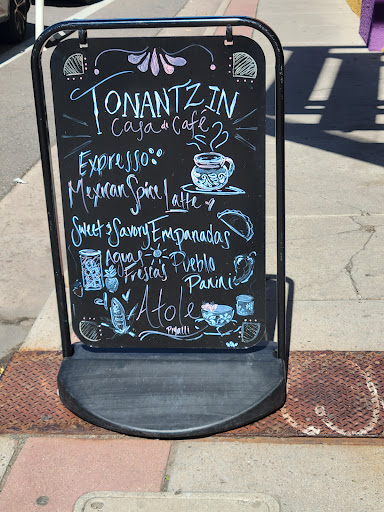 TONANTZIN
Casa de Café
Expresso
Mexican Spice Latte
Sweet & Savory Empanadas
Aguas Frescas
Pueblo Panini
Atole